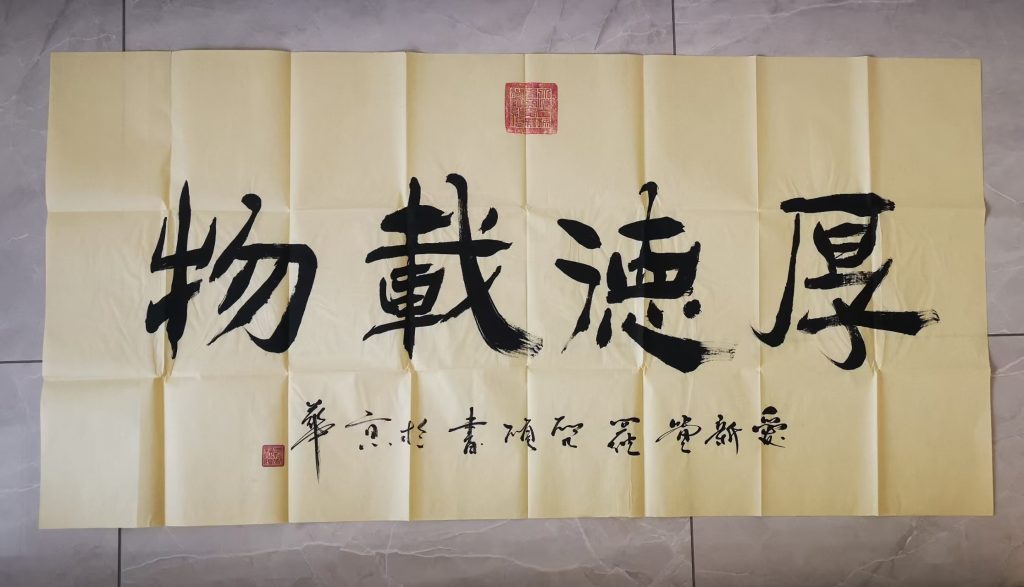 厚德載物
愛新覺羅碩書於京華